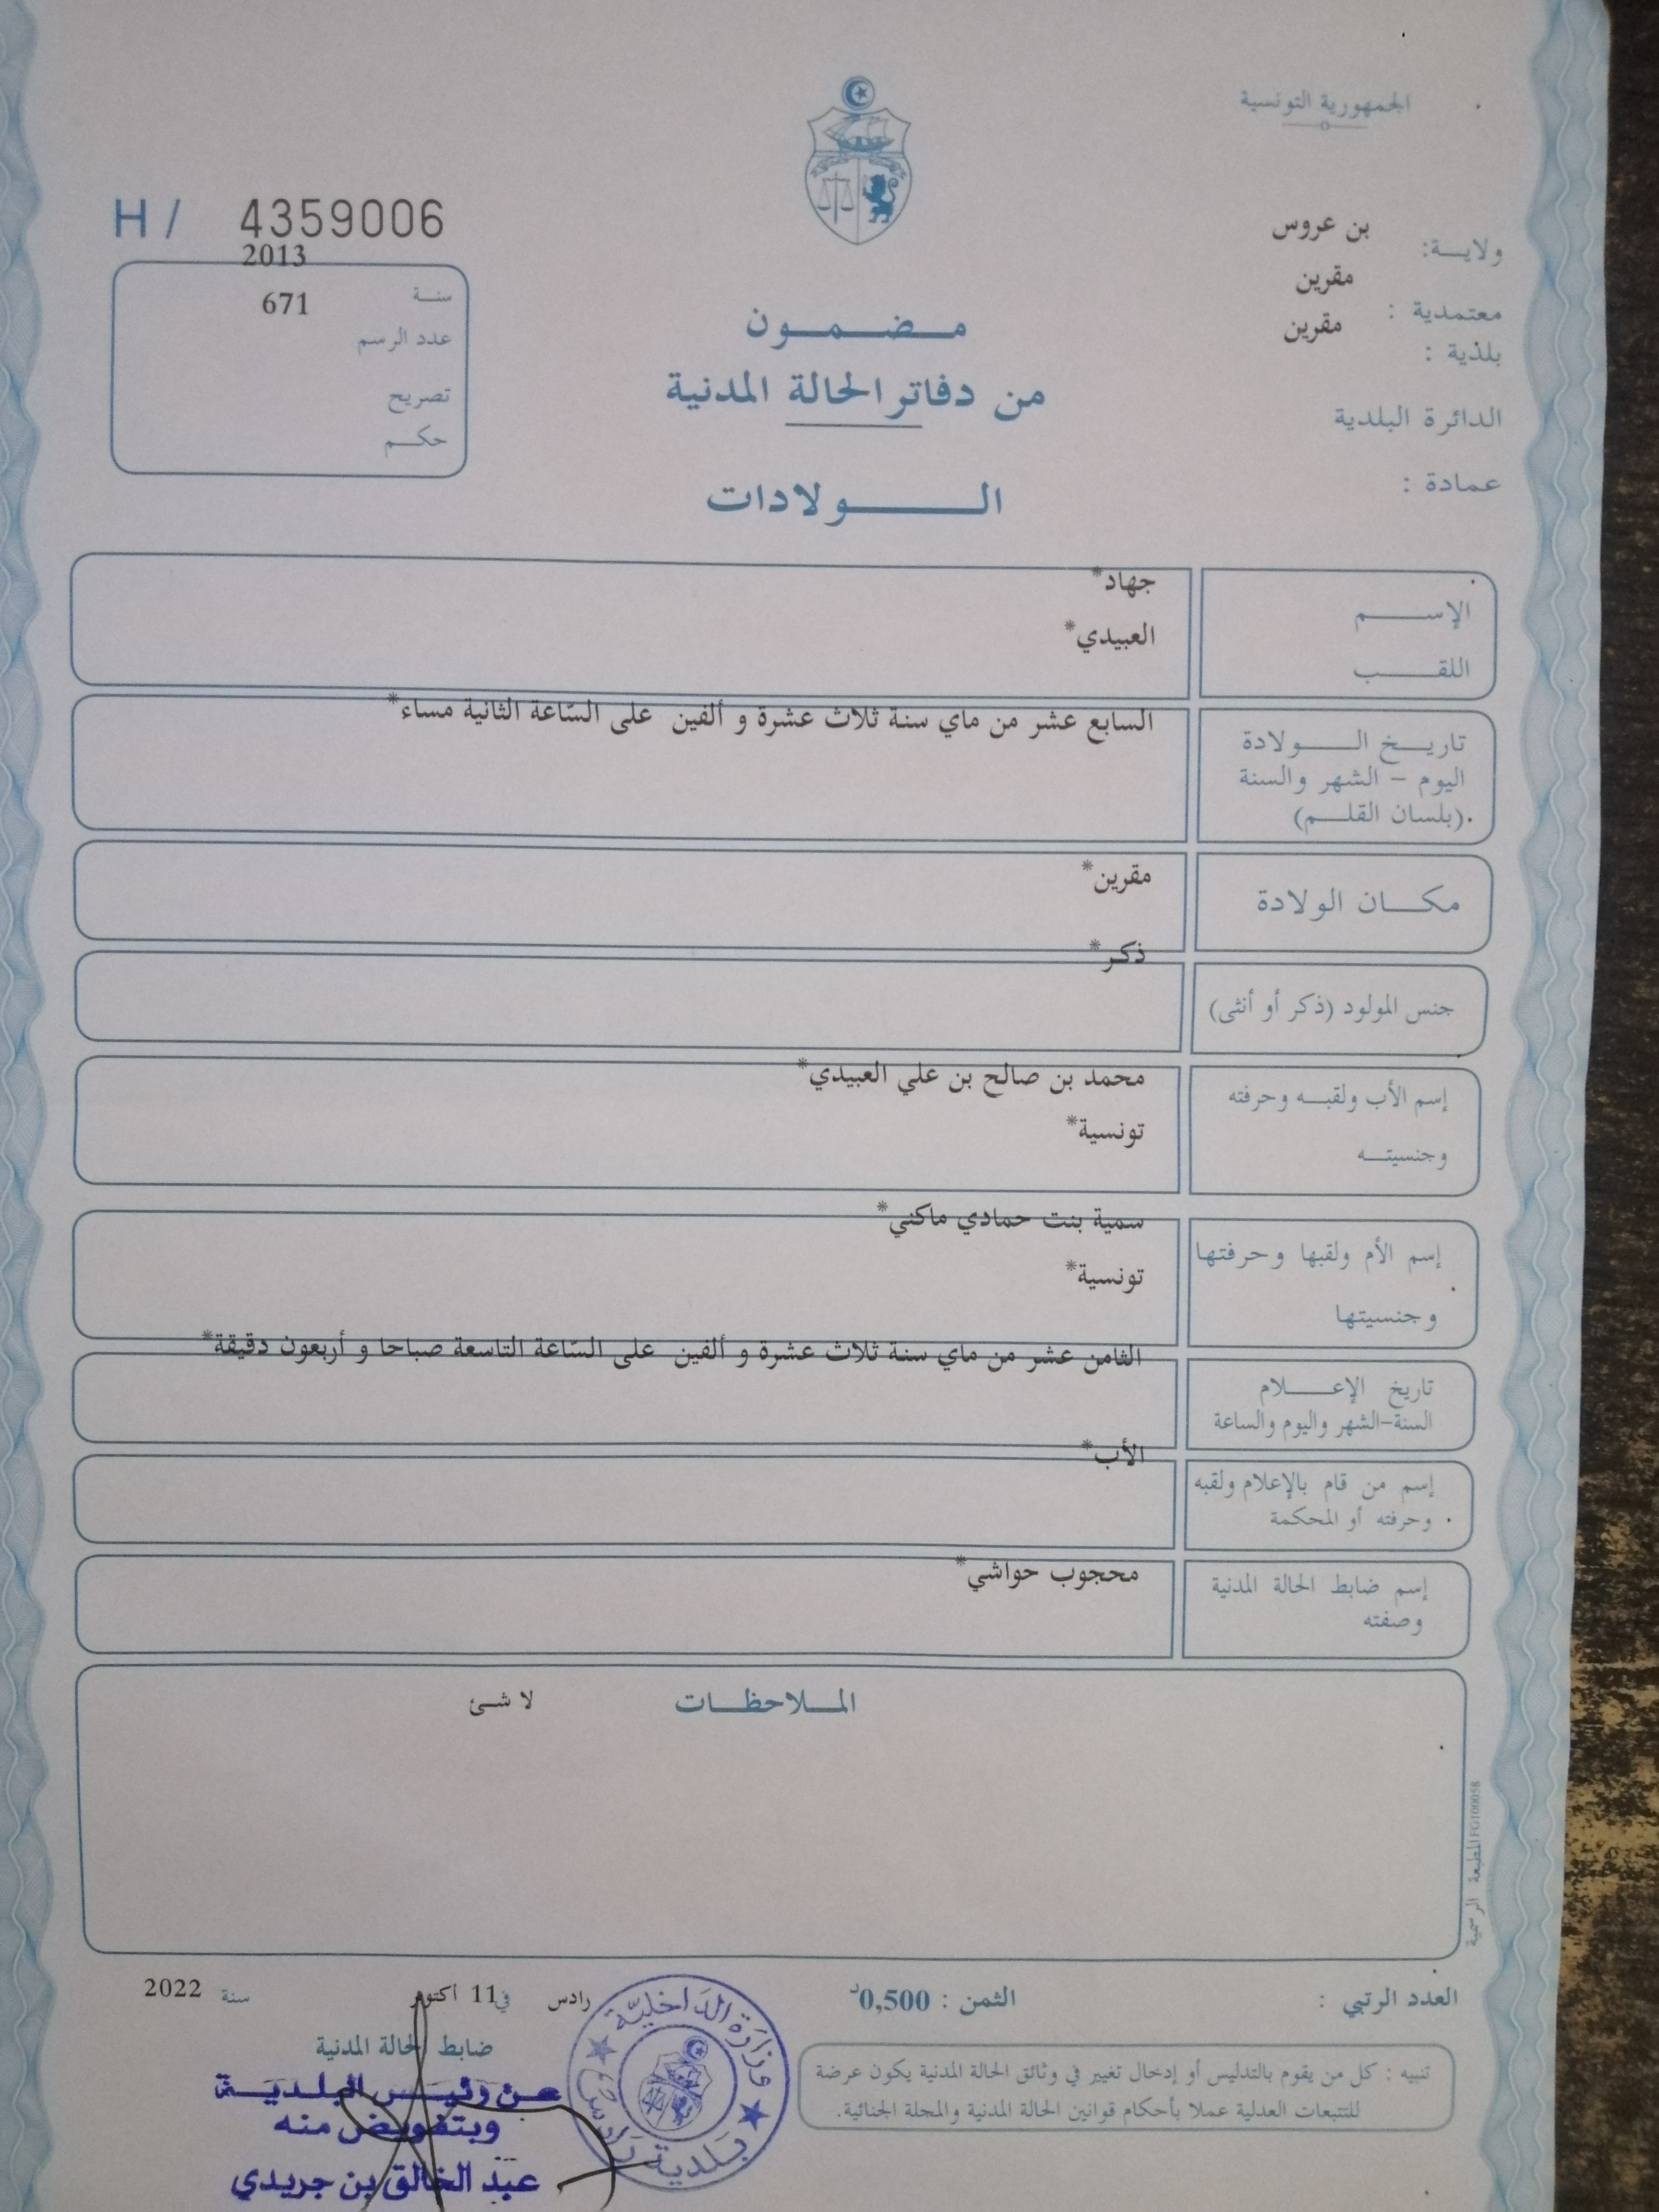 الجمهورية التونسية
ولايـــة: بن عروس
معتمدية : مقرين
بلدية : مقرين
الدائرة البلدية
عمادة :
H / 4359006
2013
سنـة
671
عدد الرسم
تصريح
حكـم
مـضـمـون
من دفاتر الحالة المدنية
الـــولادات
الإســـم جهاد*
اللقـــب العبيدي*
تاريـخ الـــولادة
اليوم – الشهر والسنة
(بلسان القلـم)
السابع عشر من ماي سنة ثلاث عشرة و ألفين على السّاعة الثانية مساء*
مكـــان الولادة مقرين*
جنس المولود (ذكر أو أنثى) ذكر*
إسم الأب ولقبـه وحرفته محمد بن صالح بن علي العبيدي*
وجنسيتـه تونسية*
إسم الأم ولقبها وحرفتها سمية بنت حمادي ماكني*
وجنسيتها تونسية*
تاريخ الإعـــلام
السنة-الشهر واليوم والساعة
الثامن عشر من ماي سنة ثلاث عشرة و ألفين على السّاعة التاسعة صباحا و أربعون دقيقة*
إسم من قام بالإعلام ولقبه
وحرفته أو المحكمة
الأب*
إسم ضابط الحالة المدنية
وصفته
محجوب حواشي*
المـلاحظـات لا شئ
المطبعة الرسمية FG100058
العدد الرتبي :
الثمن : 0,500د
رادس في 11 أكتوبر سنة 2022
ضابط الحالة المدنية
عـن رئيـس البلديـة
وبتفويض منه
عبد الخالق بن جريدي
وزارة الداخلية
بلدية رادس
تنبيه : كل من يقوم بالتدليس أو إدخال تغيير في وثائق الحالة المدنية يكون عرضة
للتتبعات العدلية عملا بأحكام قوانين الحالة المدنية والمجلة الجنائية.